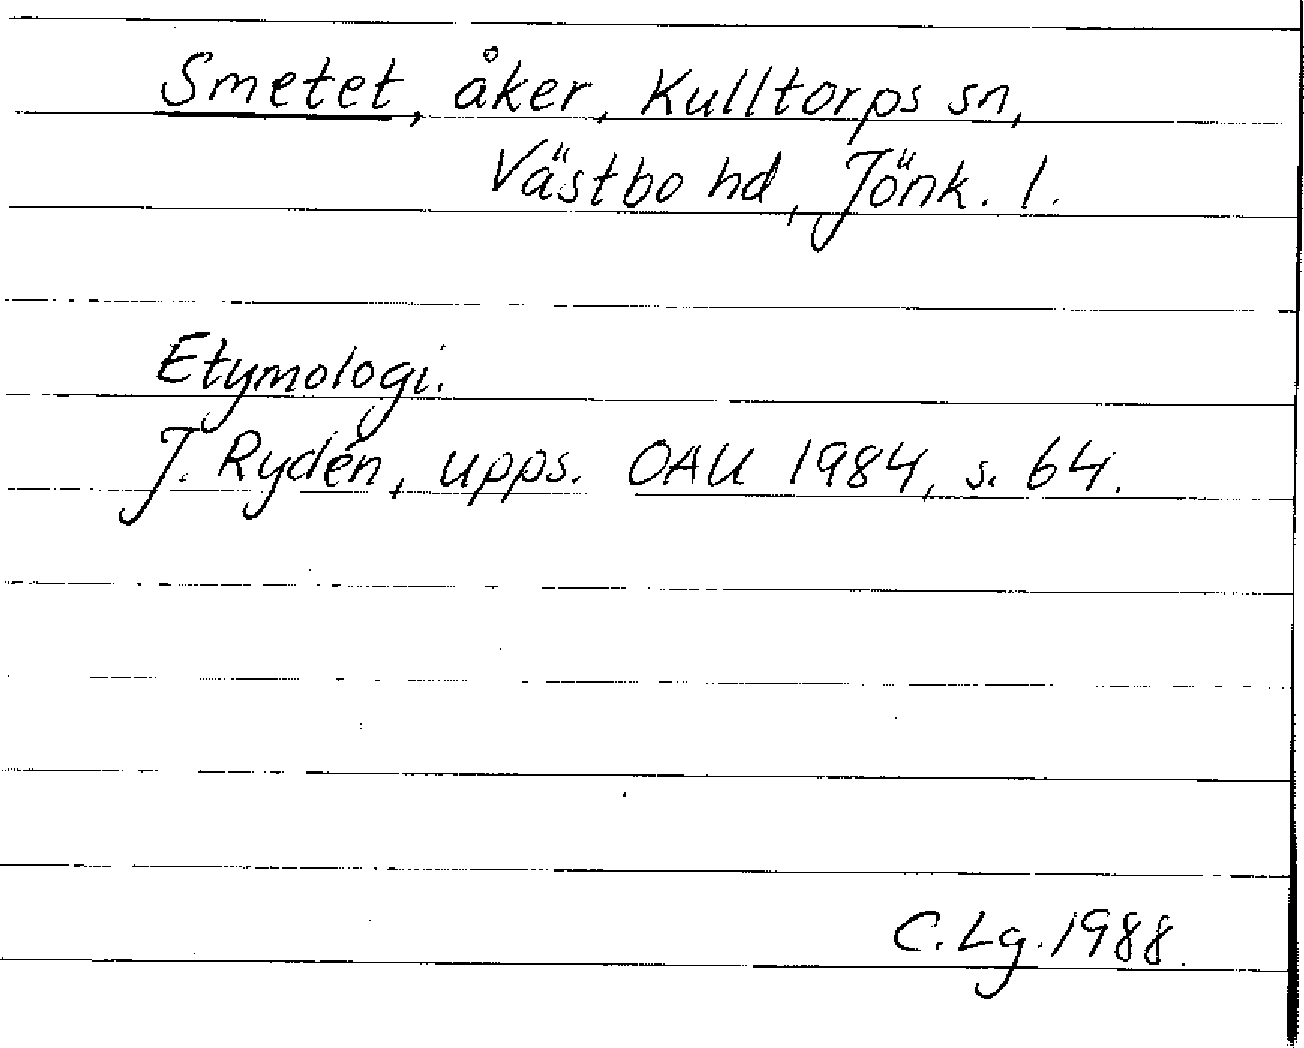 Smetet, åker, Kulltorps sn,
Västbo hd, Jönk. l.
Etymologi.
J. Rydén, upps. OAU 1984, s. 64.
C. Lg. 1988.